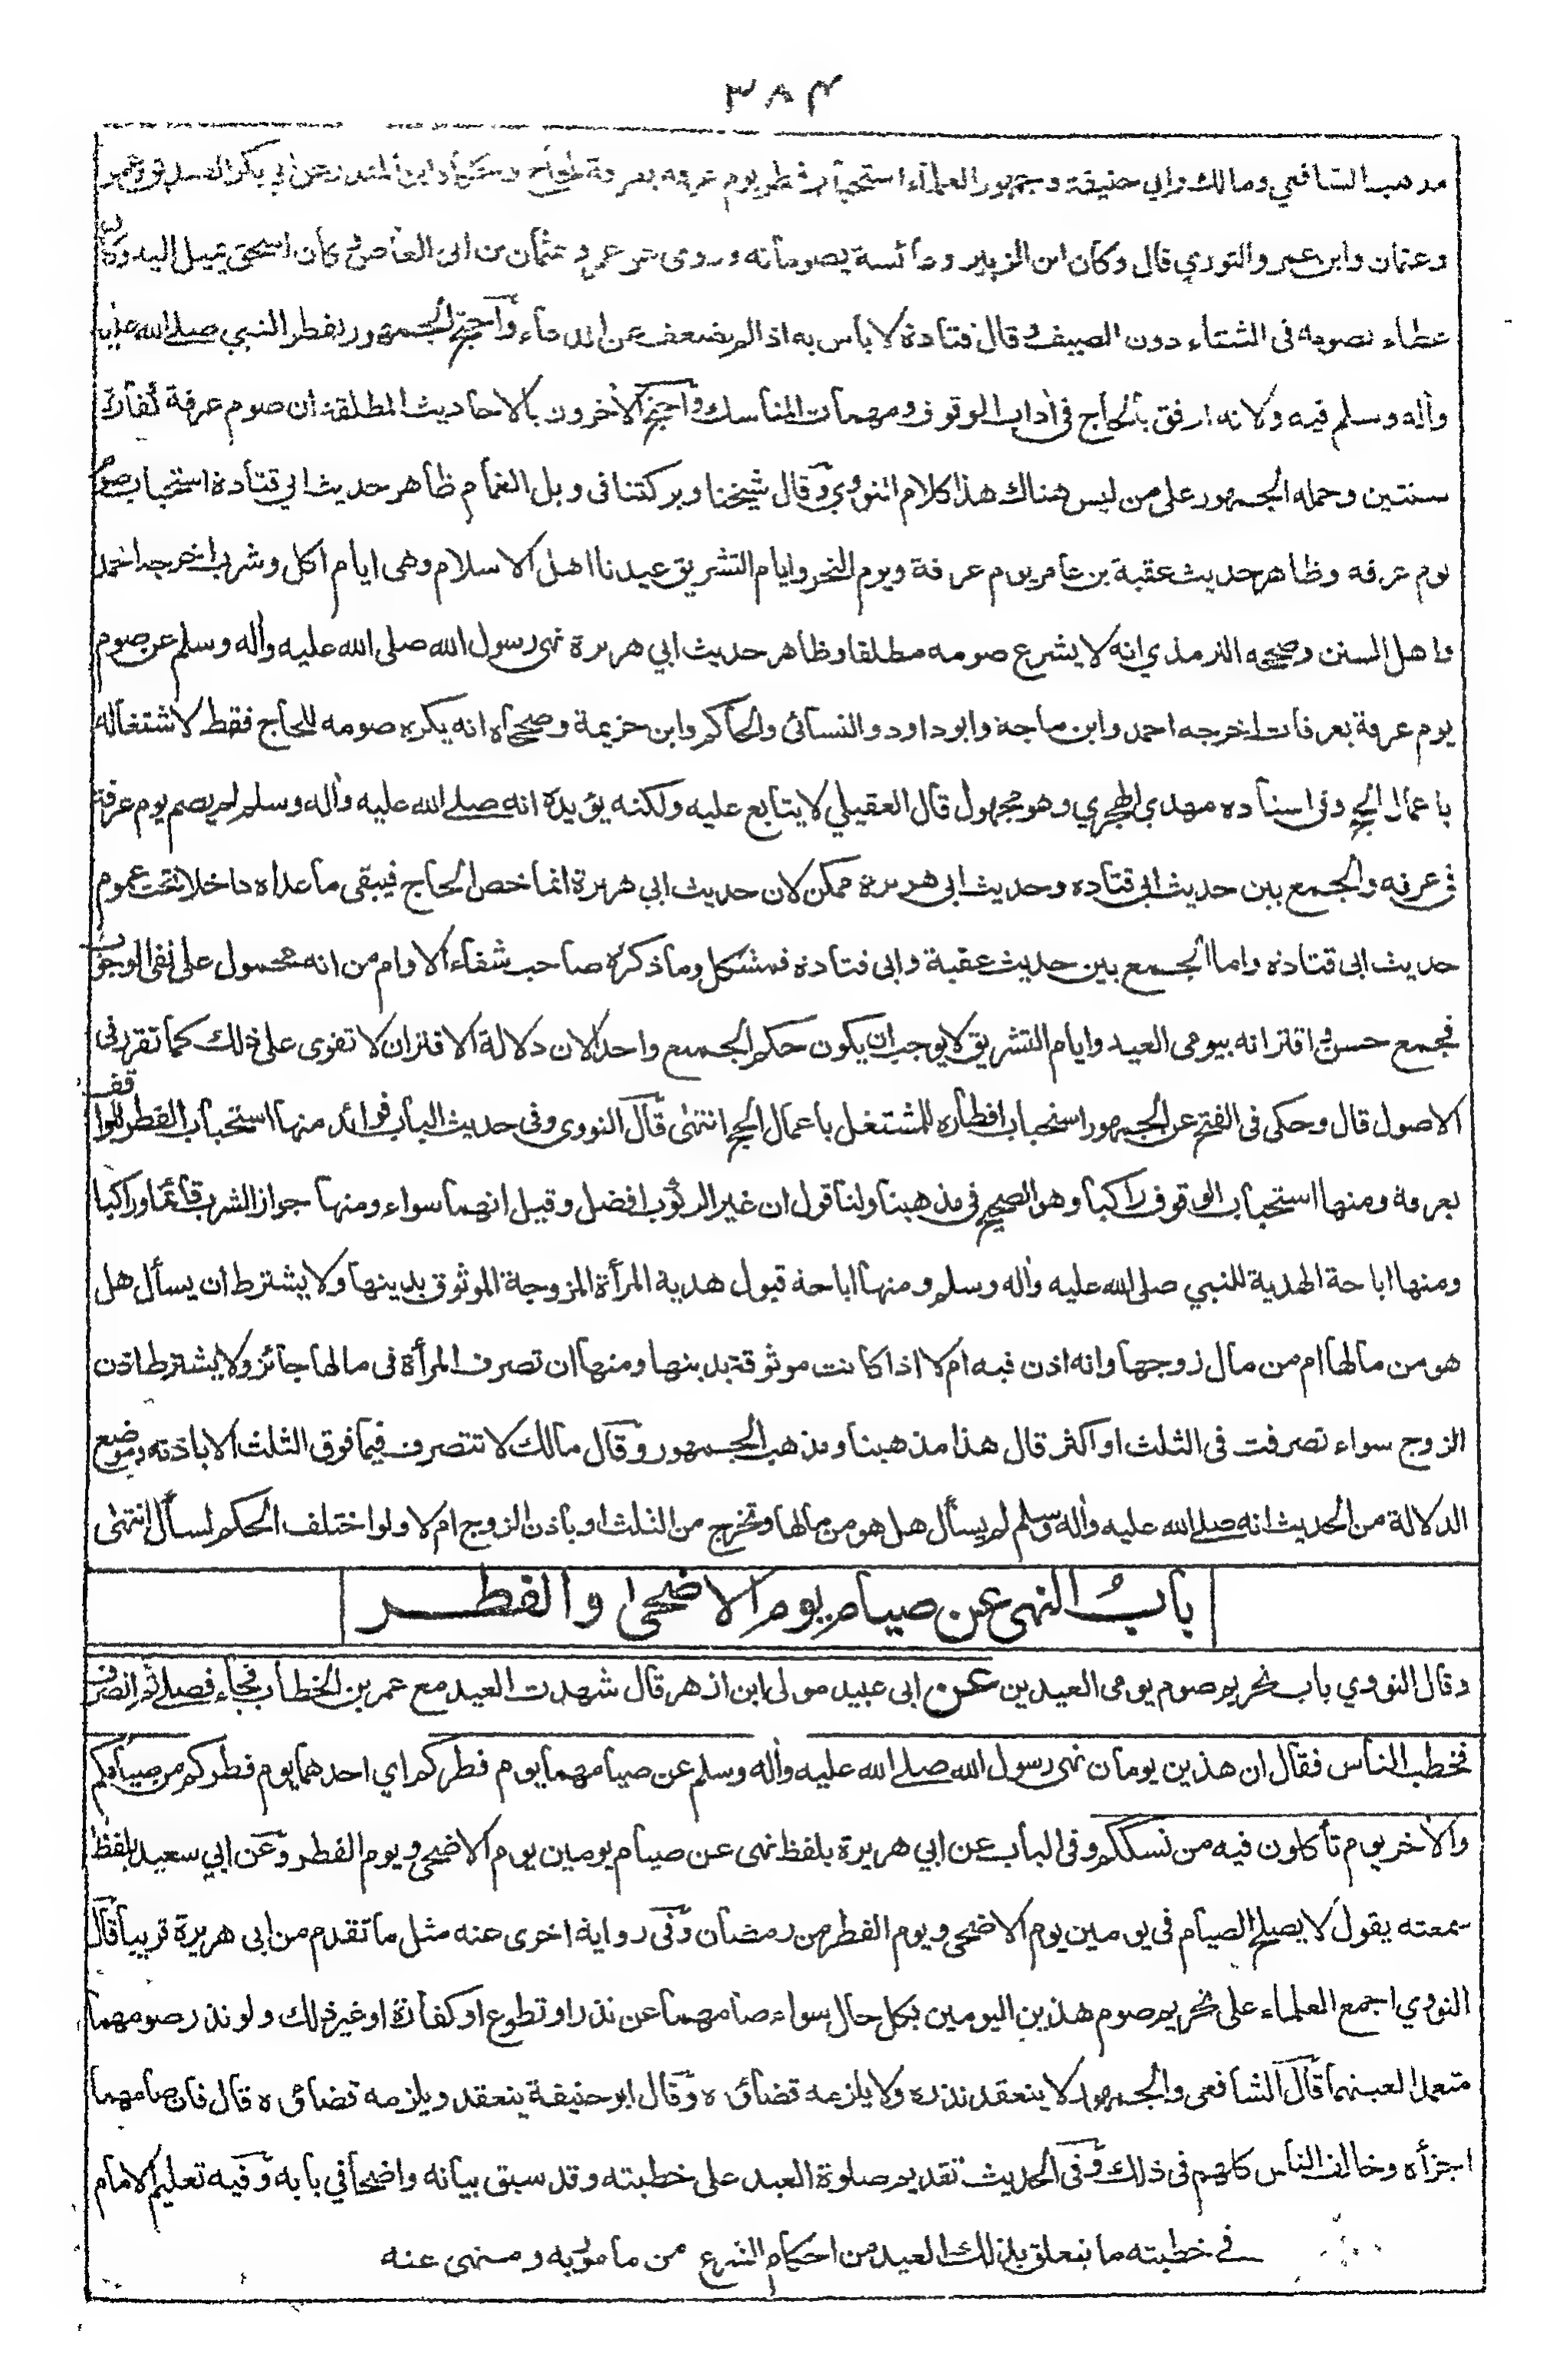 ٣٨٤
مذهب الشافعي ومالك وابي حنيفة وجمهور العلماء استحباب فطر يوم عرفه بعرفة للحاج وحكاه ابن المنذر عن ابي بكر الصديق وعمر
وعثمان وابن عمر والثوري قال وكان ابن الزبير وعائشة يصومانه وروى عن عمر وعثمان بن ابى العاص وكان اسحق يميل اليه وكان
عطاء يصومه فى الشتاء دون الصيف وقال قتادة لا باس به اذا لم يضعف عن الدعاء واحتج الجمهور بفطر النبي صلى الله عليه
واٰله وسلم فيه ولانه ارفق بالحاج فى اٰداب الوقوف ومهمات المناسك واحتج الاٰخرون بالاحاديث المطلقة ان صوم عرفة كفارة
سنتين وحمله الجمهور على من ليس هناك هذا كلام النووي وقال شيخنا وبركتنا فى وبل الغمام ظاهر حديث ابي قتادة استحباب صوم
يوم عرفه وظاهر حديث عقبة بن عامر يوم عرفة ويوم النحر وايام التشريق عيدنا اهل الاسلام وهى ايام اكل وشرب اخرجه احمد
واهل السنن وصححه الترمذي انه لا يشرع صومه مطلقا وظاهر حديث ابي هريرة نهى رسول الله صلى الله عليه واٰله وسلم عن صوم
يوم عرفة بعرفات اخرجه احمد وابن ماجة وابو داود والنسائى والحاكم وابن خزيمة وصححاه انه يكره صومه للحاج فقط لاشتغاله
باعمال الحج وفى اسناده مهدي الهجري وهو مجهول قال العقيلي لا يتابع عليه ولكنه يؤيده انه صلى الله عليه واٰله وسلم لم يصم يوم عرفة
فى عرفه والجمع بين حديث ابى قتاده وحديث ابى هريرة ممكن لان حديث ابي هريرة انما خص الحاج فيبقى ما عداه داخلا تحت عموم
حديث ابى قتادة واما الجمع بين حديث عقبة وابى قتادة فمشكل وما ذكره صاحب شفاء الاوام من انه محمول على نفى الوجوب
فجمع حسن واقترانه بيومى العيد وايام التشريق لا يوجب ان يكون حكم الجميع واحدا لان دلالة الاقتران لا تقوى على ذلك كما تقرر فى
الاصول قال وحكى فى الفتح عن الجمهور استحباب افطاره للمشتغل باعمال الحج انتهى قال النووى وفى حديث الباب فوائد منها استحباب الفطر للواقف
بعرفة ومنها استحباب الوقوف راكبا وهو الصحيح فى مذهبنا ولنا قول ان غير الركوب افضل وقيل انهما سواء ومنها جواز الشرب قائما وراكبا
ومنها اباحة الهدية للنبي صلى الله عليه واٰله وسلم ومنها اباحة قبول هدية المرأة المزوجة الموثوق بدينها ولا يشترط ان يسأل هل
هو من مالها ام من مال زوجها وانه اذن فيه ام لا اذا كانت موثوقة بدينها ومنها ان تصرف المرأة فى مالها جائز ولا يشترط اذن
الزوج سواء تصرفت فى الثلث او اكثر قال هذا مذهبنا ومذهب الجمهور وقال مالك لا تتصرف فيما فوق الثلث الا باذنه وموضع
الدلالة من الحديث انه صلى الله عليه واٰله وسلم لم يسأل هل هو من مالها وتخرج من الثلث او باذن الزوج ام لا ولو اختلف الحكم لسأل انتهى
باب النهى عن صيام يوم الاضحى والفطر
وقال النووي باب تحريم صوم يومى العيدين عن ابى عبيد مولى ابن ازهر قال شهدت العيد مع عمر بن الخطاب فجاء فصلى ثم انصرف
فخطب الناس فقال ان هذين يومان نهى رسول الله صلى الله عليه واٰله وسلم عن صيامهما يوم فطركم اي احدهما يوم فطركم من صيامكم
والاٰخر يوم تأكلون فيه من نسككم وفى الباب عن ابي هريرة بلفظ نهى عن صيام يومين يوم الاضحى ويوم الفطر وعن ابي سعيد بلفظ
سمعته يقول لا يصلح الصيام فى يومين يوم الاضحى ويوم الفطر من رمضان وفى رواية اخرى عنه مثل ما تقدم من ابى هريرة قريبا قال
النووي اجمع العلماء على تحريم صوم هذين اليومين بكل حال سواء صامهما عن نذر او تطوع او كفارة او غير ذلك ولو نذر صومهما
متعمدا لعينهما قال الشافعى والجمهور لا ينعقد نذره ولا يلزمه قضاؤه وقال ابو حنيفة ينعقد ويلزمه قضاؤه قال فان صامهما
اجزأه وخالف الناس كلهم فى ذلك وفى الحديث تقديم صلوة العيد على خطبته وقد سبق بيانه واضحا في بابه وفيه تعليم الامام
فى خطبته ما يتعلق بذلك العيد من احكام الشرع من مامور به ومنهى عنه